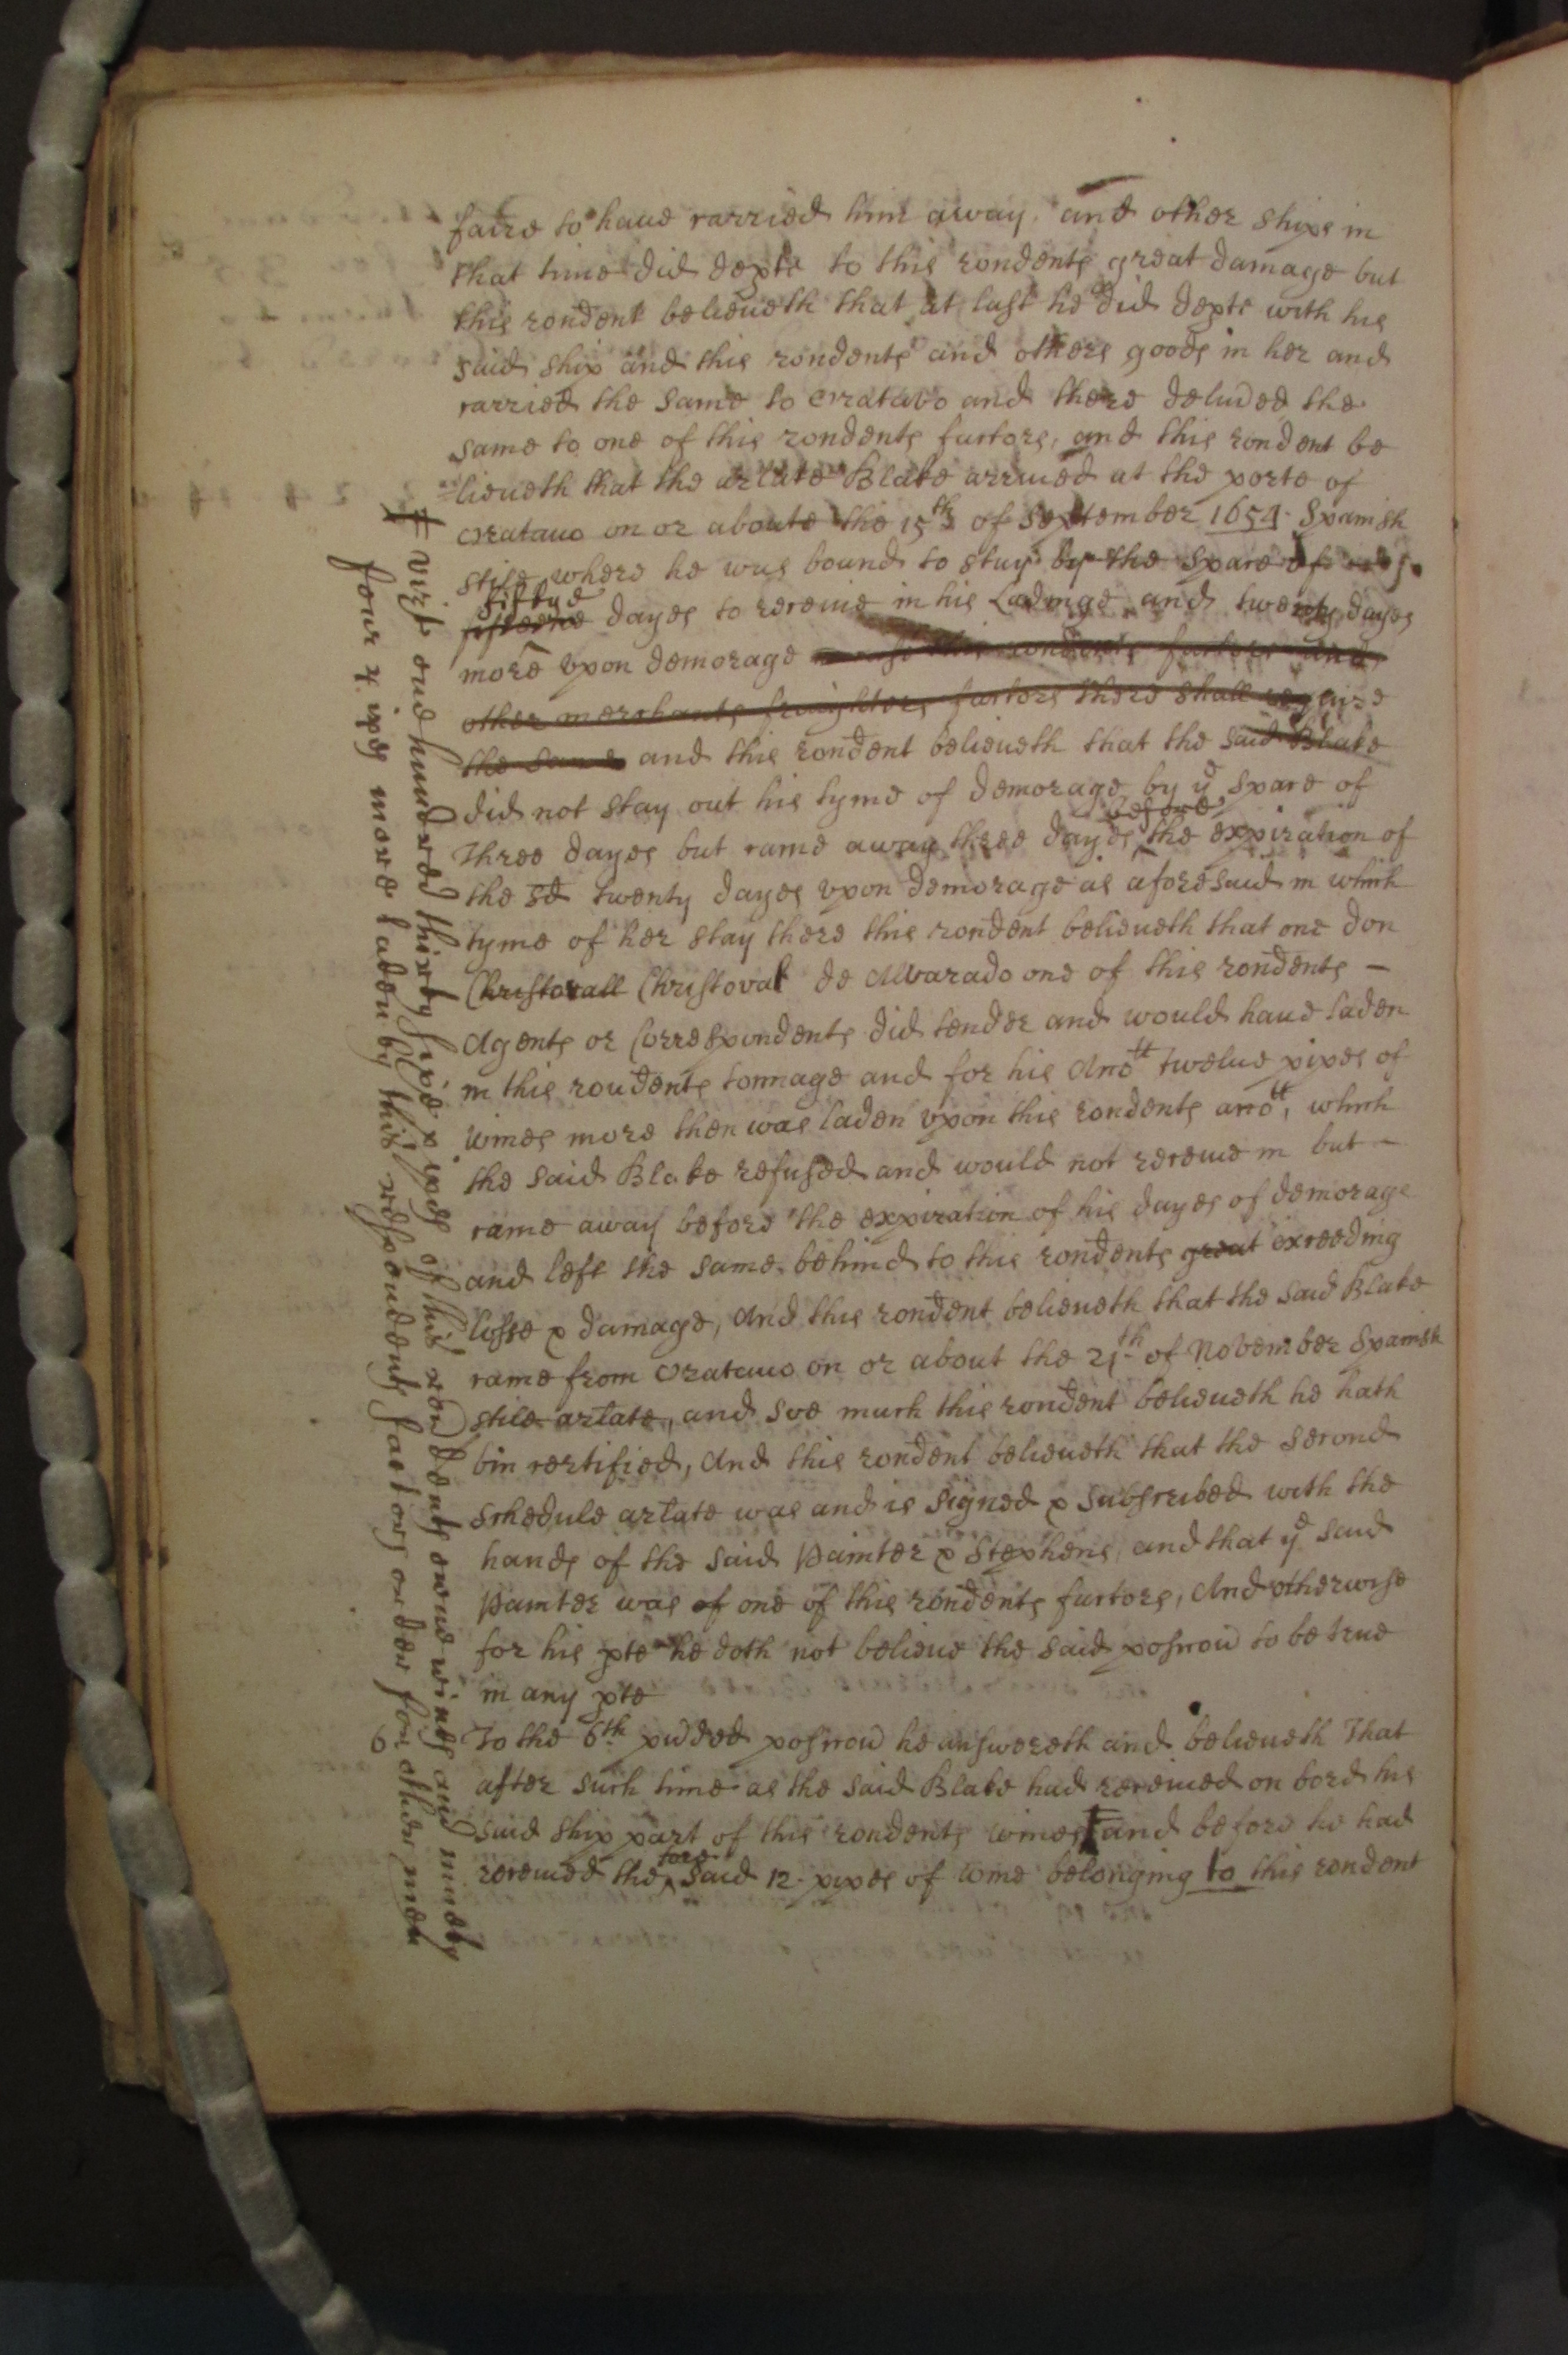 faire to haue carried him away, and other ships in
that time did depte to this rondents great damage but
this rondent belieueth that at last he did depte with his
said ship and this rondents and others goods in her and
carried the same to Oratavo and there deliued the
same to one of this rondents factors, and this rondent be
lieueth that the arlate Blake arriued at the porte of
Oratauo on or aboute the 15th of September 1654 Spanish
stile where he was bound to stay by the space of
fiftye
fifteene dayes to receiue in his Ladinge and twenty dayes
more vpon demorage this rondents factors and
other merchants fraighters factors there shall require
the same and this rondent belieueth that the said Blake
did not stay out his tyme of demorage by ye space of
before
Three dayes but came away three dayes the expiration of
the sd twenty dayes vpon demorage as aforesaid in which
tyme of her stay there this rondent belieueth that one don
Christovall Christoval de Alvarado one of this rondents -
Agents or Correspondents did tender and would haue laden
in this rondents tonnage and for his Acctt twelue pipes of
wines more then was laden vpon this rondents acctt, which
the said Blake refused and would not receiue in but -
came away before the expiration of his dayes of demorage
and left the same behind to this rondents great exceeding
losse & damage, And this rondent belieueth that the said Blake
came from Oratauo on or about the 21th of November Spanish
stile arlate, and soe much this rondent belieueth he hath
bin certified, And this rondent belieueth that the second
schedule arlate was and is signed & subscribed with the
hands of the said Painter & Stephens, and that ye said
Painter was of one of this rondents factors, And otherwise
for his pte he doth not belieue the said posicon to be true
in any pte
6. To the 6th pudded posicon he answereth and belieueth That
after such time as the said Blake had receiued on bord his
said ship part of this rondents wines ‡ and before he had
fore
receiued the said 12 pipes of wine belonging to this rondent
‡ vizt one hundred thirty fiue pipes of this rondents owne wines and ninety
four pipes more laden by this respondents factors order for other men